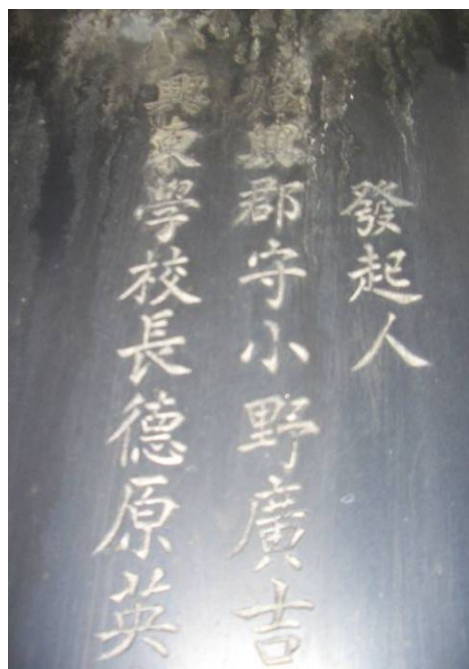 發起人
始興郡守小野廣吉
興東學校長德原英